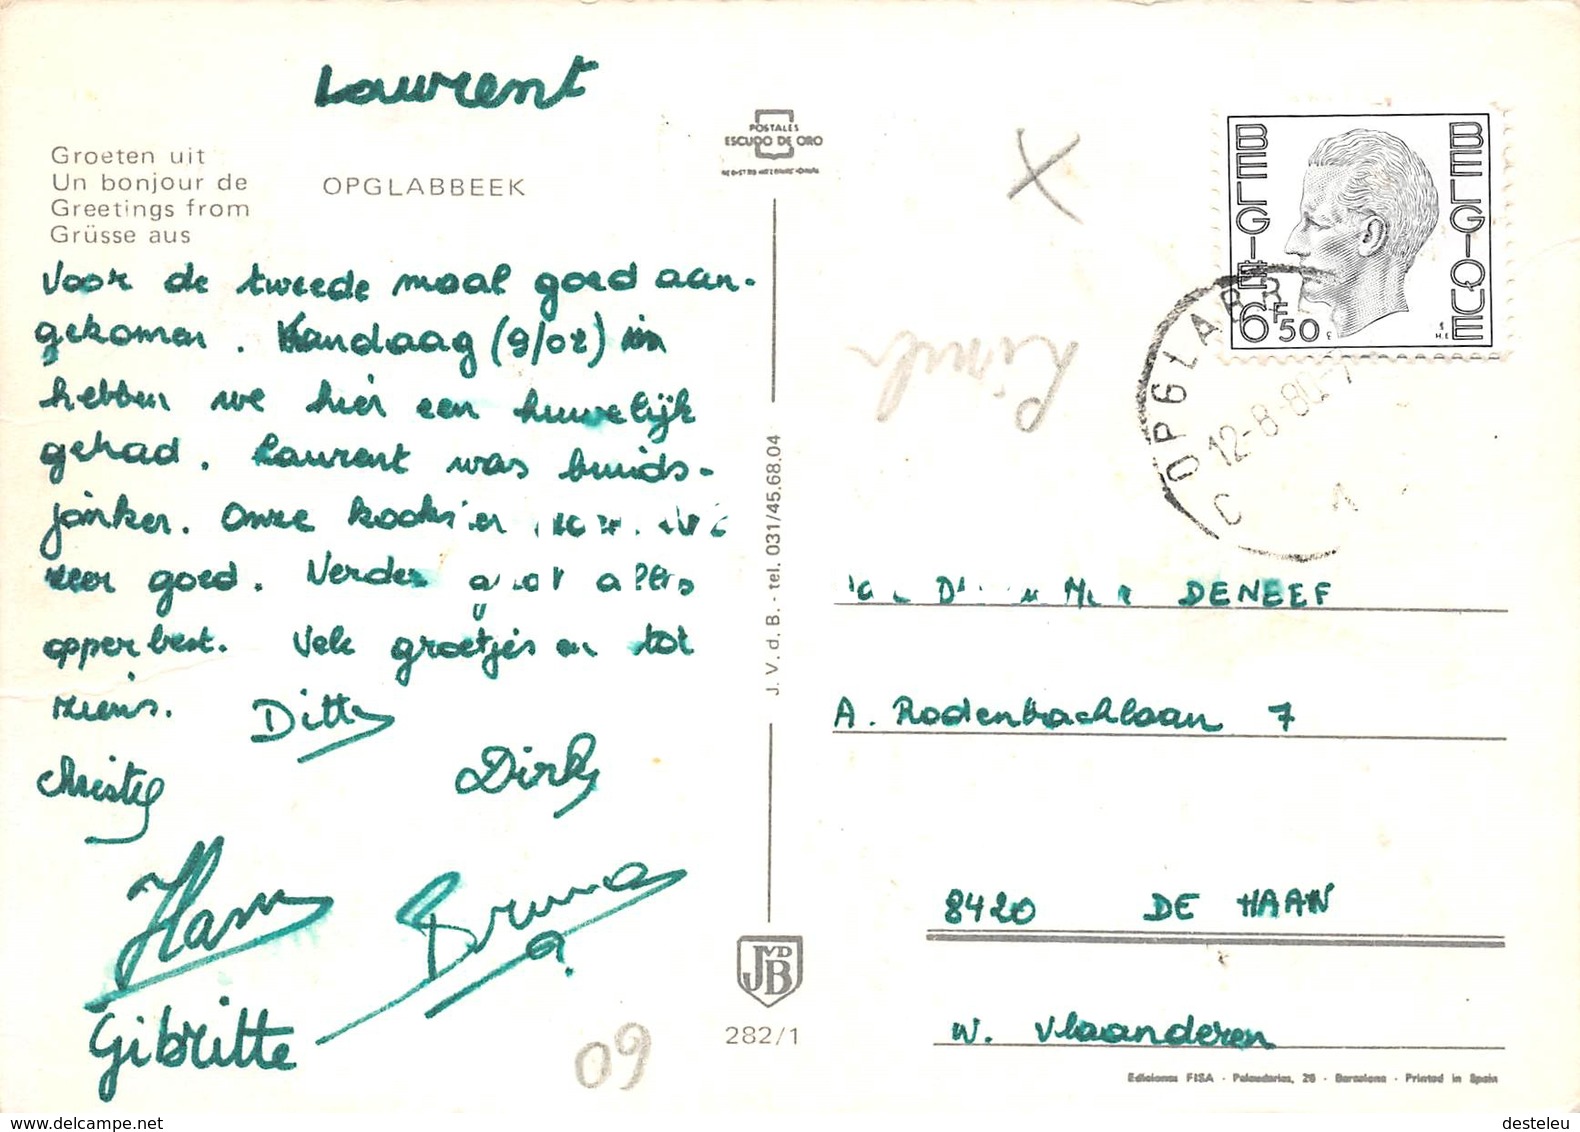 Laurent
Groeten uit
Un bonjour de
Greetings from
Grüsse aus
OPGLABBEEK
Voor de tweede maal goed aan-
gekomen. Vandaag (9/08)
hebben we hier een huwelijk
gehad. Laurent was bruids-
jonker. Onze
zeer goed. Verder alles
opperbest. Vele groetjes en tot
ziens. Ditte
Christel Dirk
Hans Bruno
Gibritte
09
POSTALES
ESCUDO DE ORO
J.V.d.B. - tel. 031/45.68.04
JVDB
282/1
BELGIE BELGIQUE
6F50
OPGLABB
12-8-80-7
C A
DENEEF
A. Rodenbachlaan 7
8420 DE HAAN
W. Vlaanderen
Ediciones FISA - Palaudarias, 26 - Barcelona - Printed in Spain
desteleu